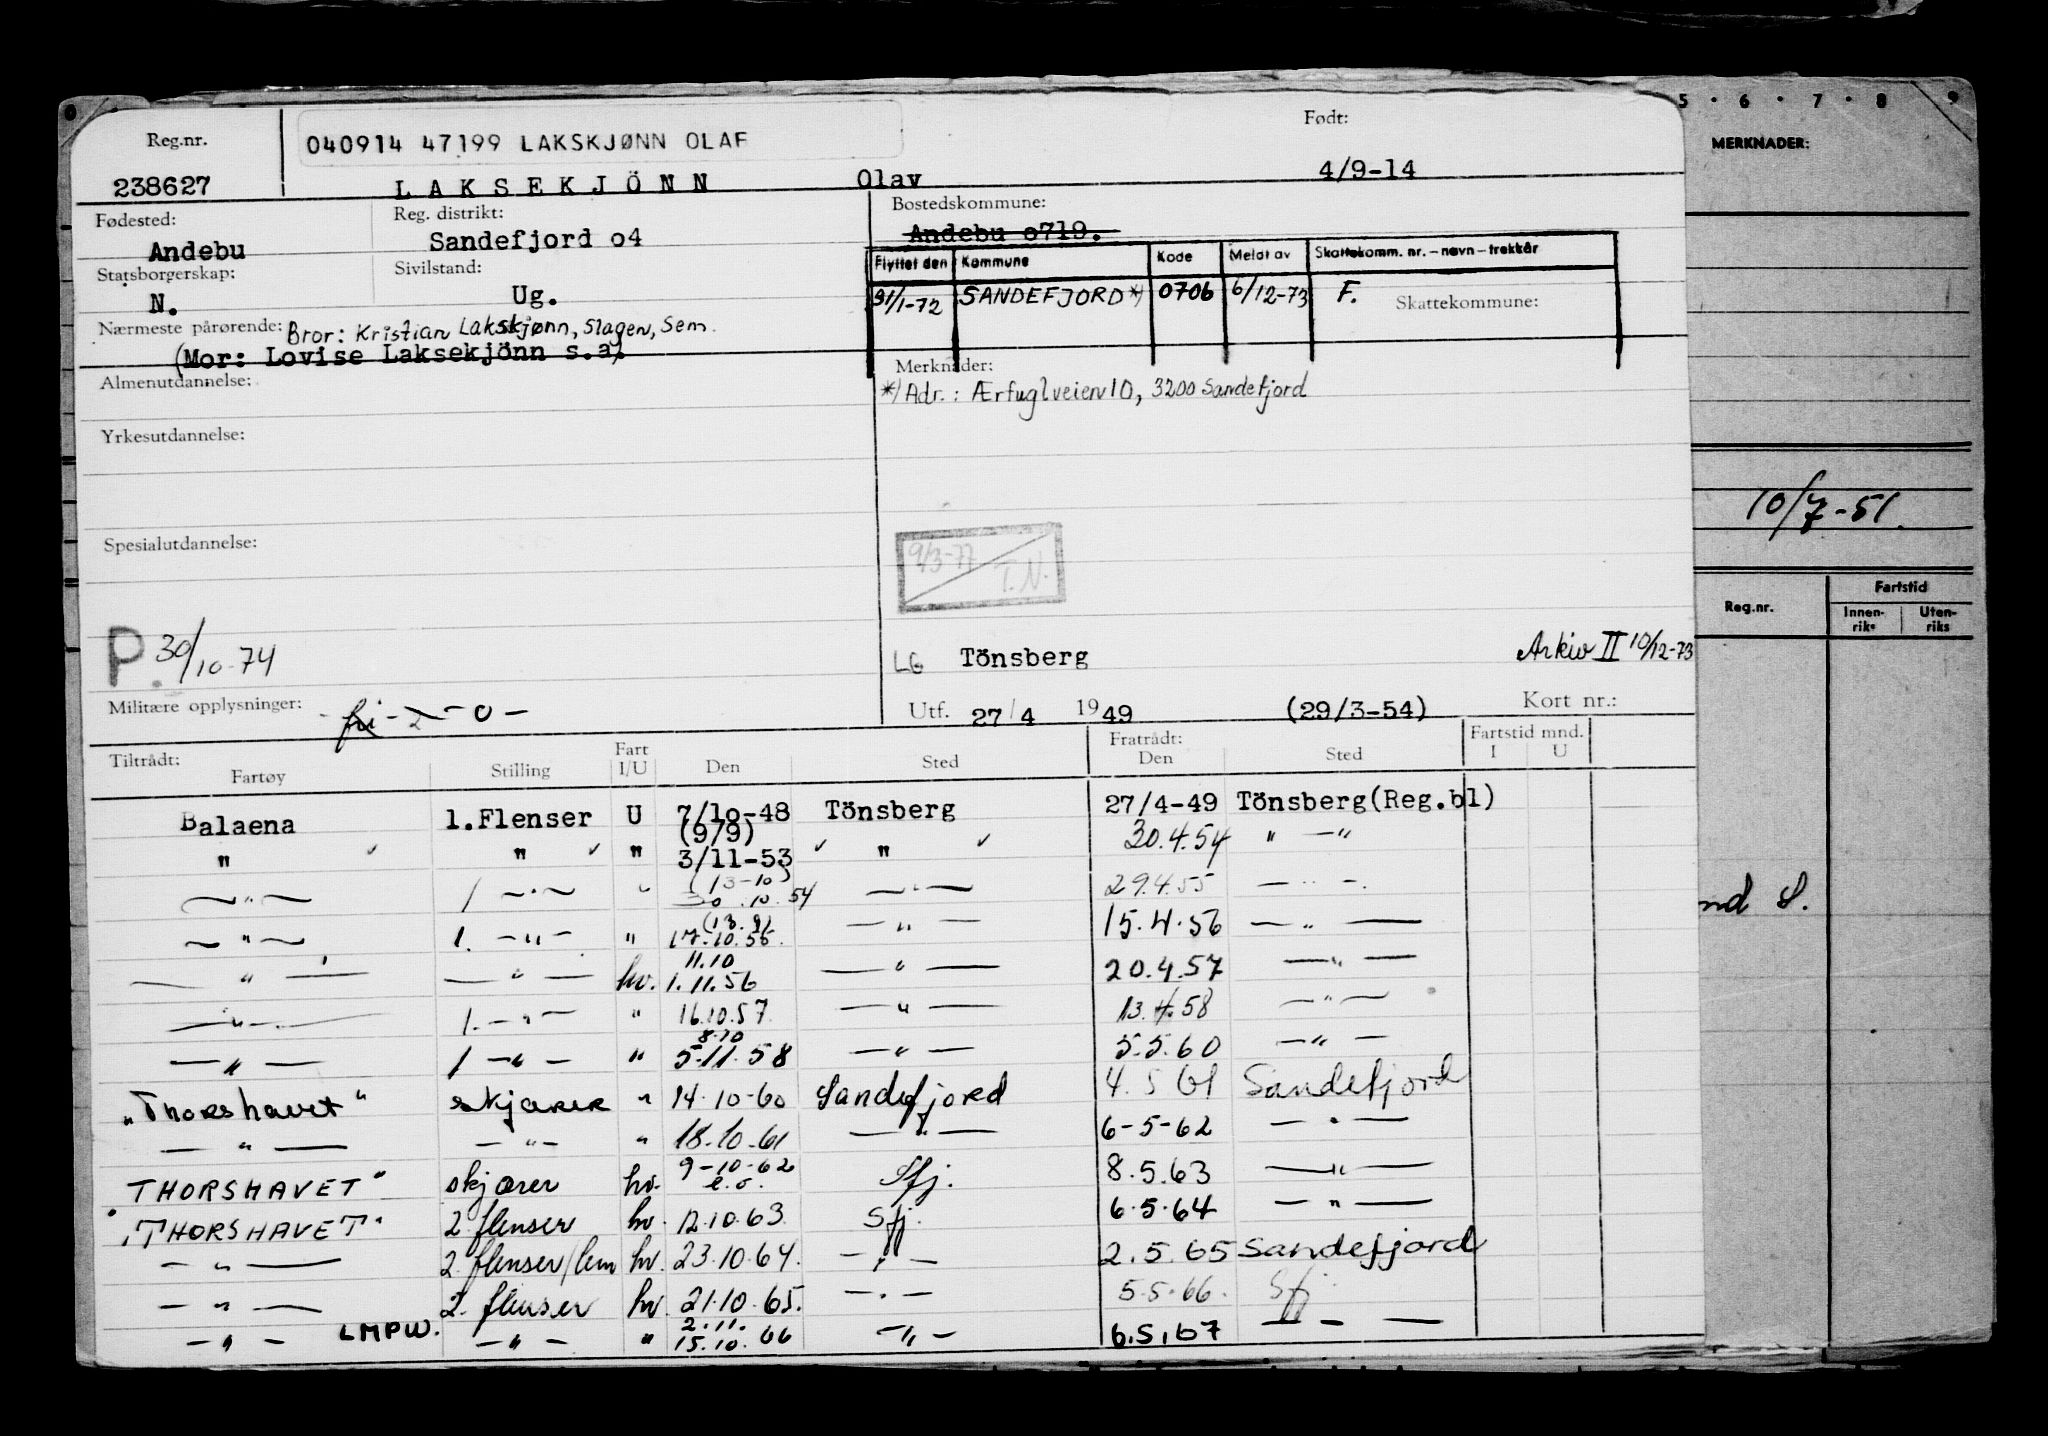 Reg.nr. 040914 47199 LAKSKJØNN OLAF Født:
238627 L A K S E K J Ö N N Olav 4/9-14
Fødested: Reg. distrikt: Bostedskommune:
Andebu Sandefjord o4 Andebu o719.
Statsborgerskap: Sivilstand:
N. Ug.
Flyttet den Kommune Kode Meldt av Skattekomm. nr. – navn – trekkår
31/1-72 SANDEFJORD *) 0706 6/12-73 F. Skattekommune:
Nærmeste pårørende: Bror: Kristian Lakskjønn, Slagen, Sem.
(Mor: Lovise Laksekjönn s.a)
Almenutdannelse: Merknader:
*) Adr.: Ærfuglveien 10, 3200 Sandefjord
Yrkesutdannelse:
Spesialutdannelse: 9/3-77 T.N.
P. 30/10-74
LG Tönsberg Arkiv II 10/12-73
Militære opplysninger: - fri - 2 - 0 - Utf. 27/4 1949 (29/3-54) Kort nr.:
Tiltrådt: Fart Fratrådt: Fartstid mnd.
Fartøy Stilling I/U Den Sted Den Sted I U
Balaena 1.Flenser U 7/10-48 Tönsberg 27/4-49 Tönsberg(Reg.bl)
(9/9)
" " " 3/11-53 " 30.4.54 " —"
(13-10)
—"— 1 —"— " .10.54 —"— 29.4.55 — " —
(13.9)
—"— 1. —"— " 17.10.55. —"— 15.4.56 —"—
11.10
—"— —"— hv. 1.11.56 —"— 20.4.57 —"—
—"— 1. —"— " 16.10.57. —"— 13.4.58 —"—
8.10
—"— 1 —"— " 5.11.58 —"— 5.5.60 —"—
"Thorshavet" skjærer " 14.10-60 Sandefjord 4.5 61 Sandefjord
—"— —"— " 18.10.61 —"— 6-5-62 —"—
THORSHAVET" skjærer hv. 9-10-62 Sfj. 8.5.63 —"—
e.o.
"THORSHAVET" 2 flenser hv. 12.10.63. Sfj. 6.5.64 —"—
—"— 2 flenser/lem hv. 23.10.64. —"— 2.5.65 Sandefjord
—"— 2. flenser hv. 21.10.65. —"— 5.5.66. Sfj
2.11.
—"— LMPW. —"— " 15.10.66 —"— 6.5.67 — – —
5 · 6 · 7 · 8 · 9
MERKNADER:
10/7-51.
Reg.nr. Fartstid
Innen-riks Uten-riks
nd S.